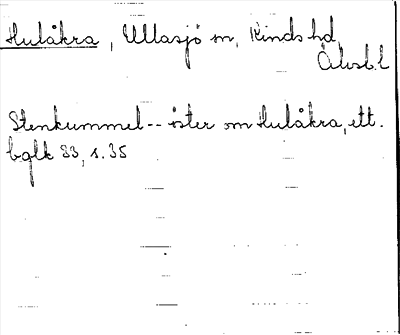 Hulåkra, Ullasjö sn, Kinds hd
Älvsb. l
Stenkummel -- öster om Hulåkra, ett.
bglk 33, s. 35